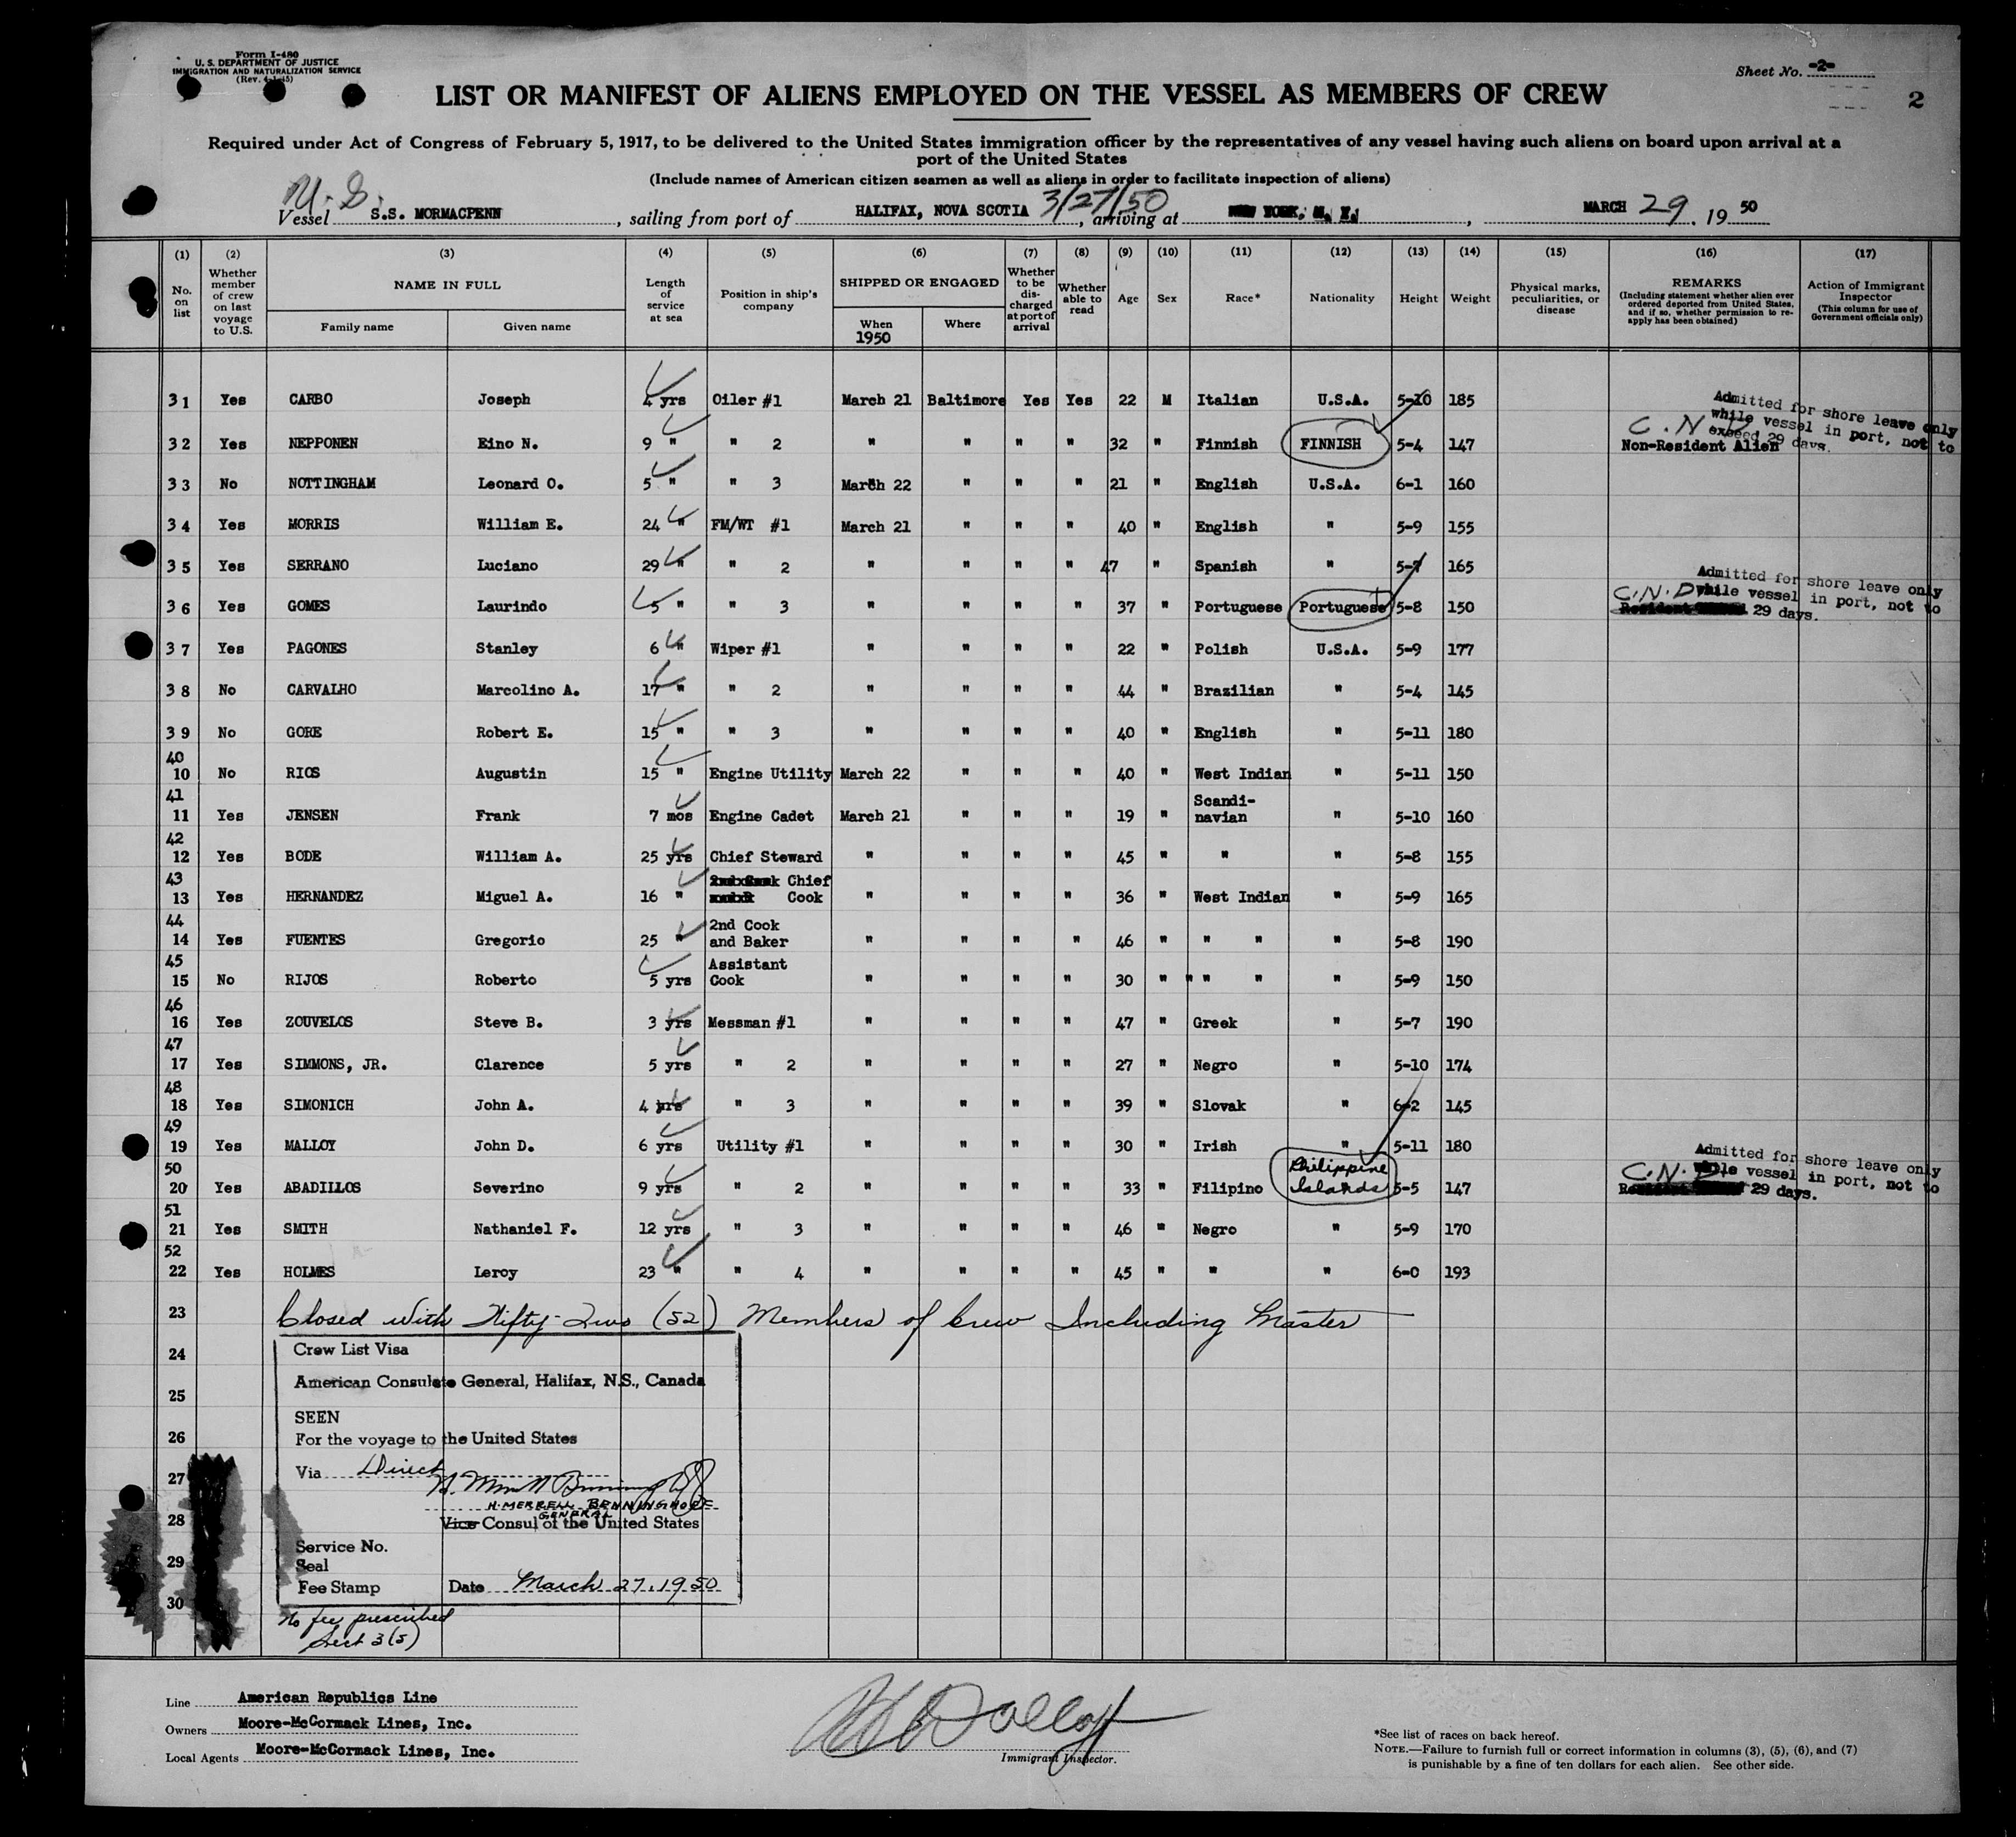 Form I-480
U. S. DEPARTMENT OF JUSTICE
IMMIGRATION AND NATURALIZATION SERVICE
(Rev. 4-1-45)
Sheet No. -2-
2
LIST OR MANIFEST OF ALIENS EMPLOYED ON THE VESSEL AS MEMBERS OF CREW
Required under Act of Congress of February 5, 1917, to be delivered to the United States immigration officer by the representatives of any vessel having such aliens on board upon arrival at a
port of the United States
(Include names of American citizen seamen as well as aliens in order to facilitate inspection of aliens)
U.S.
Vessel S.S. MORMACPENN, sailing from port of HALIFAX, NOVA SCOTIA 3/27/50, arriving at NEW YORK, N. Y., MARCH 29, 1950
(1) (2) (3) (4) (5) (6) (7) (8) (9) (10) (11) (12) (13) (14) (15) (16) (17)
No. on list
Whether member of crew on last voyage to U.S.
NAME IN FULL
Family name Given name
Length of service at sea
Position in ship's company
SHIPPED OR ENGAGED
When 1950 Where
Whether to be discharged at port of arrival
Whether able to read
Age Sex Race* Nationality Height Weight
Physical marks, peculiarities, or disease
REMARKS
(Including statement whether alien ever ordered deported from United States, and if so, whether permission to reapply has been obtained)
Action of Immigrant Inspector
(This column for use of Government officials only)
31 Yes CARBO Joseph 4 yrs Oiler #1 March 21 Baltimore Yes Yes 22 M Italian U.S.A. 5-10 185
Admitted for shore leave only
while vessel in port, not to
exceed 29 days.
32 Yes NEPPONEN Eino N. 9 " " 2 " " " " 32 " Finnish FINNISH 5-4 147 C.N.D. Non-Resident Alien
33 No NOTTINGHAM Leonard O. 5 " " 3 March 22 " " " 21 " English U.S.A. 6-1 160
34 Yes MORRIS William E. 24 " FM/WT #1 March 21 " " " 40 " English " 5-9 155
35 Yes SERRANO Luciano 29 " " 2 " " " " 47 " Spanish " 5-7 165
Admitted for shore leave only
while vessel in port, not to
29 days.
36 Yes GOMES Laurindo 5 " " 3 " " " " 37 " Portuguese Portuguese 5-8 150 C.N.D. Resident
37 Yes PAGONES Stanley 6 " Wiper #1 " " " " 22 " Polish U.S.A. 5-9 177
38 No CARVALHO Marcolino A. 17 " " 2 " " " " 44 " Brazilian " 5-4 145
39 No GORE Robert E. 15 " " 3 " " " " 40 " English " 5-11 180
40
10 No RIOS Augustin 15 " Engine Utility March 22 " " " 40 " West Indian " 5-11 150
41
11 Yes JENSEN Frank 7 mos Engine Cadet March 21 " " " 19 " Scandi-navian " 5-10 160
42
12 Yes BODE William A. 25 yrs Chief Steward " " " " 45 " " " 5-8 155
43
13 Yes HERNANDEZ Miguel A. 16 " Chief Cook " " " " 36 " West Indian " 5-9 165
44
14 Yes FUENTES Gregorio 25 " 2nd Cook and Baker " " " " 46 " " " " 5-8 190
45
15 No RIJOS Roberto 5 yrs Assistant Cook " " " " 30 " " " " " 5-9 150
46
16 Yes ZOUVELOS Steve B. 3 yrs Messman #1 " " " " 47 " Greek " 5-7 190
47
17 Yes SIMMONS, JR. Clarence 5 yrs " 2 " " " " 27 " Negro " 5-10 174
48
18 Yes SIMONICH John A. 4 yrs " 3 " " " " 39 " Slovak " 6-2 145
49
19 Yes MALLOY John D. 6 yrs Utility #1 " " " " 30 " Irish " 5-11 180
Admitted for shore leave only
while vessel in port, not to
29 days.
50
20 Yes ABADILLOS Severino 9 yrs " 2 " " " " 33 " Filipino Philippine Islands 5-5 147 C.N.D. Resident
51
21 Yes SMITH Nathaniel F. 12 yrs " 3 " " " " 46 " Negro " 5-9 170
52
22 Yes HOLMES Leroy 23 " " 4 " " " " 45 " " " 6-0 193
23 Closed with Fifty-Two (52) Members of Crew Including Master
24
25
26
27
28
29
30
Crew List Visa
American Consulate General, Halifax, N.S., Canada
SEEN
For the voyage to the United States
Via Direct
H. MERRELL BENNINGHOFF
GENERAL
Vice Consul of the United States
Service No.
Seal
Fee Stamp Date March 27, 1950
No fee prescribed
Sect 3(5)
Line American Republics Line
Owners Moore-McCormack Lines, Inc.
Local Agents Moore-McCormack Lines, Inc.
Immigrant Inspector.
*See list of races on back hereof.
NOTE.—Failure to furnish full or correct information in columns (3), (5), (6), and (7)
is punishable by a fine of ten dollars for each alien. See other side.